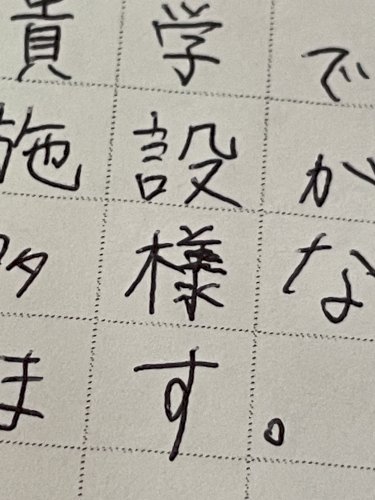 貴学で
施設が
多様な
ます。